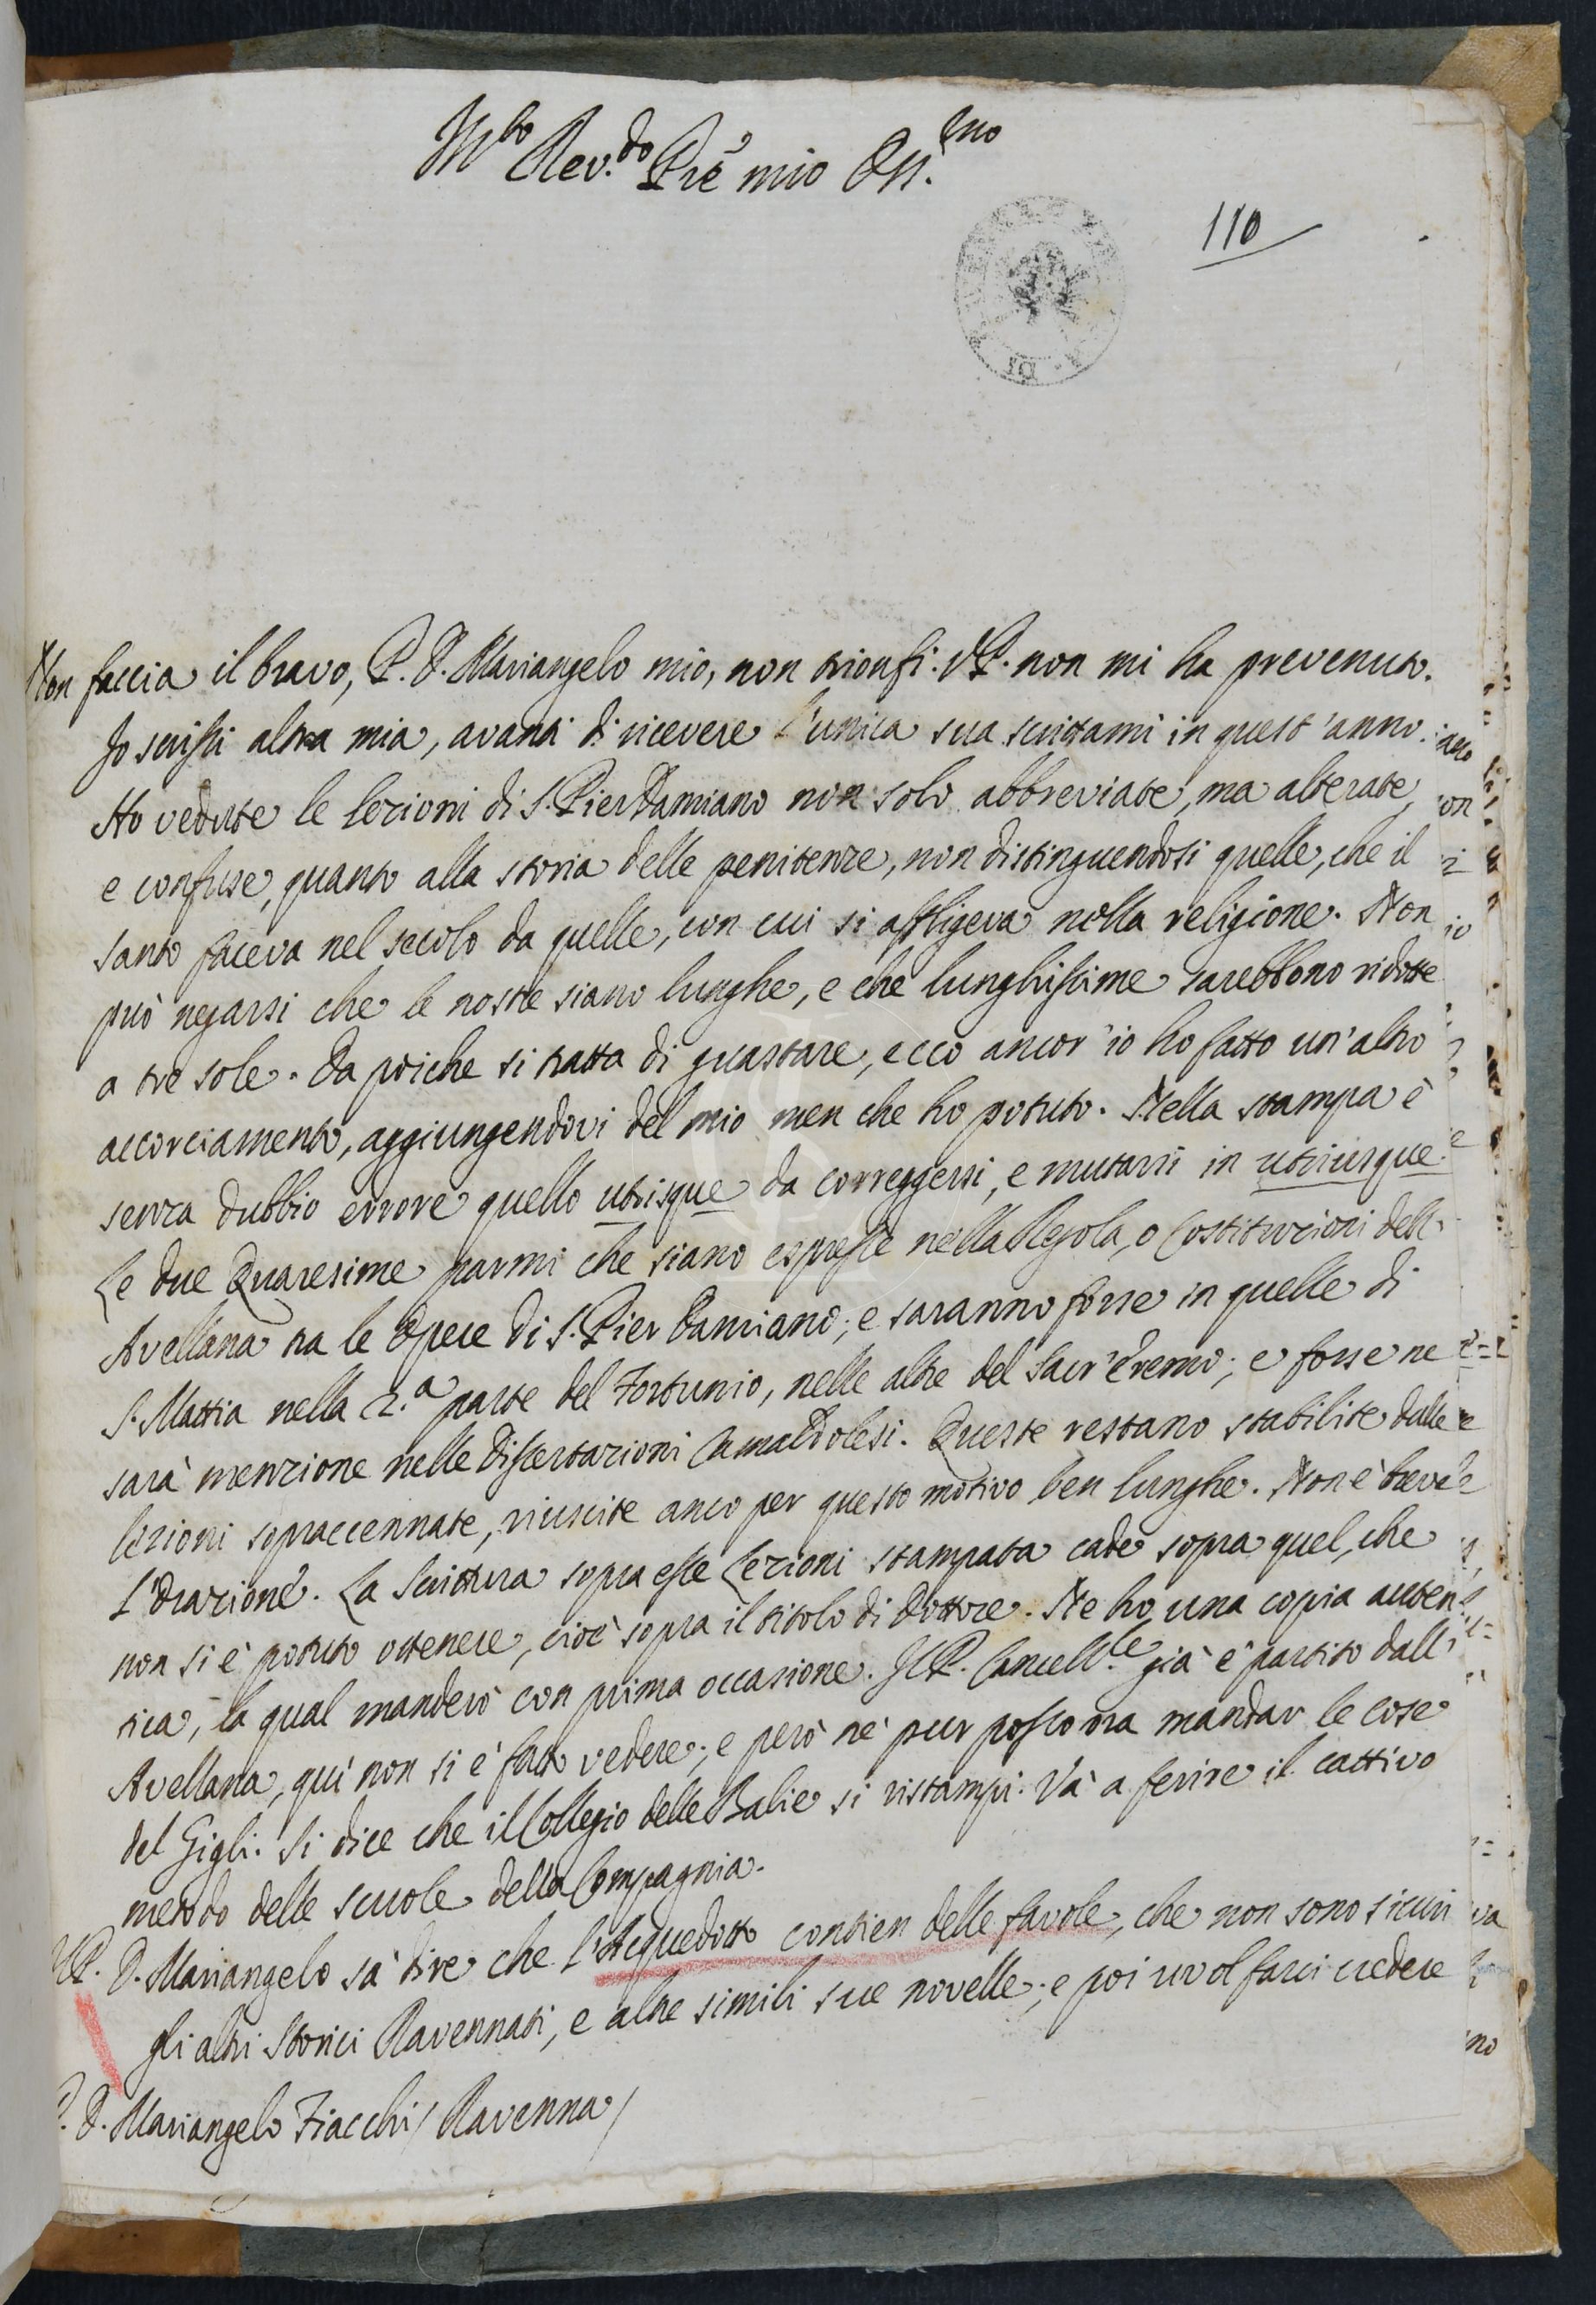 M.to Rev.do Pre mio On.mo
110
Non faccia il bravo, P. D. Mariangelo mio, non trionfi. V.P. non mi ha prevenuto.
Io scrissi altra mia, avanti di ricevere l'unica sua scrittami in quest'anno.
Ho vedute le lezioni di S. Pier Damiano non solo abbreviate, ma alterate,
e confuse, quanto alla storia delle penitenze, non distinguendosi quelle, che il
santo faceva nel secolo da quelle, con cui si affligeva nella religione. Non
può negarsi che le nostre siano lunghe, e che lunghissime sarebbono ridotte
a tre sole. Da poiche si tratta di guastare, ecco ancor'io ho fatto un'altro
accorciamento, aggiungendovi del mio men che ho potuto. Nella stampa è
senza dubbio errore quello utrisque da correggersi, e mutarsi in utriusque.
Le due Quaresime parmi che siano espresse nella Regola, o Costituzioni dell'
Avellana tra le Opere di S. Pier Damiano; e saranno forse in quelle di
S. Mattia nella 2.a parte del Fortunio, nelle altre del Sacr'Eremo; e forse ne
sarà menzione nelle Dissertazioni Camaldolesi. Queste restano stabilite dalle
lezioni sopraccennate, riuscite anco per questo motivo ben lunghe. Non è breve
l'Orazione. La Scrittura sopra esse Lezioni stampata cade sopra quel, che
non si è potuto ottenere, cioè sopra il titolo di Dottore. Ne ho una copia auten
tica, la qual manderò con prima occasione. Il P. Cancell.le già è partito dall'
Avellana, quì non si è fatto vedere; e però nè pur posso ora mandar le cose
del Gigli. Si dice che il Collegio delle Balie si ristampi. Và a ferire il cattivo
metodo delle scuole della Compagnia.
Il P. D. Mariangelo sà dire che l'Acquedotto contien delle favole, che non sono sicuri
gli altri Storici Ravennati, e altre simili sue novelle; e poi vuol farci credere
P. D. Mariangelo Fiacchi / Ravenna /